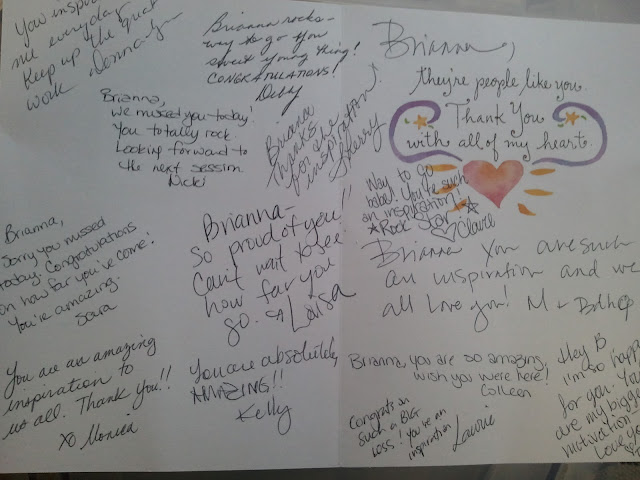 You inspire
me everyday
Keep up the great
work
Brianna rocks-
way to go you
sweet young thing!
CONGRATULATIONS!
Deby
Brianna,
we missed you today!
You totally rock.
Looking forward to
the next session
Nicki
Brianna
thanks
for the
inspiration
Sherry
Brianna,
they're people like you.
Thank You
with all of my heart.
Way to go
babe! You're such
an inspiration!
Rock Star
Claire
Brianna,
Sorry you missed
today. Congratulations
on how far you've come!
You're amazing.
Sara
Brianna-
So proud of you!!
Can't wait to see
how far you
go.
Loisa
Brianna You are such
an inspiration and we
all love you! M
You are an amazing
inspiration to
us all. Thank You!!
XO Monica
You are absolutely
AMAZING!!
Kelly
Brianna, you are so amazing,
wish you were here!
Colleen
Congrats on
such a BIG
loss! You're an
inspiration
Laurie
Hey B
I'm so happy
for you. You
are my biggest
motivation
Love you